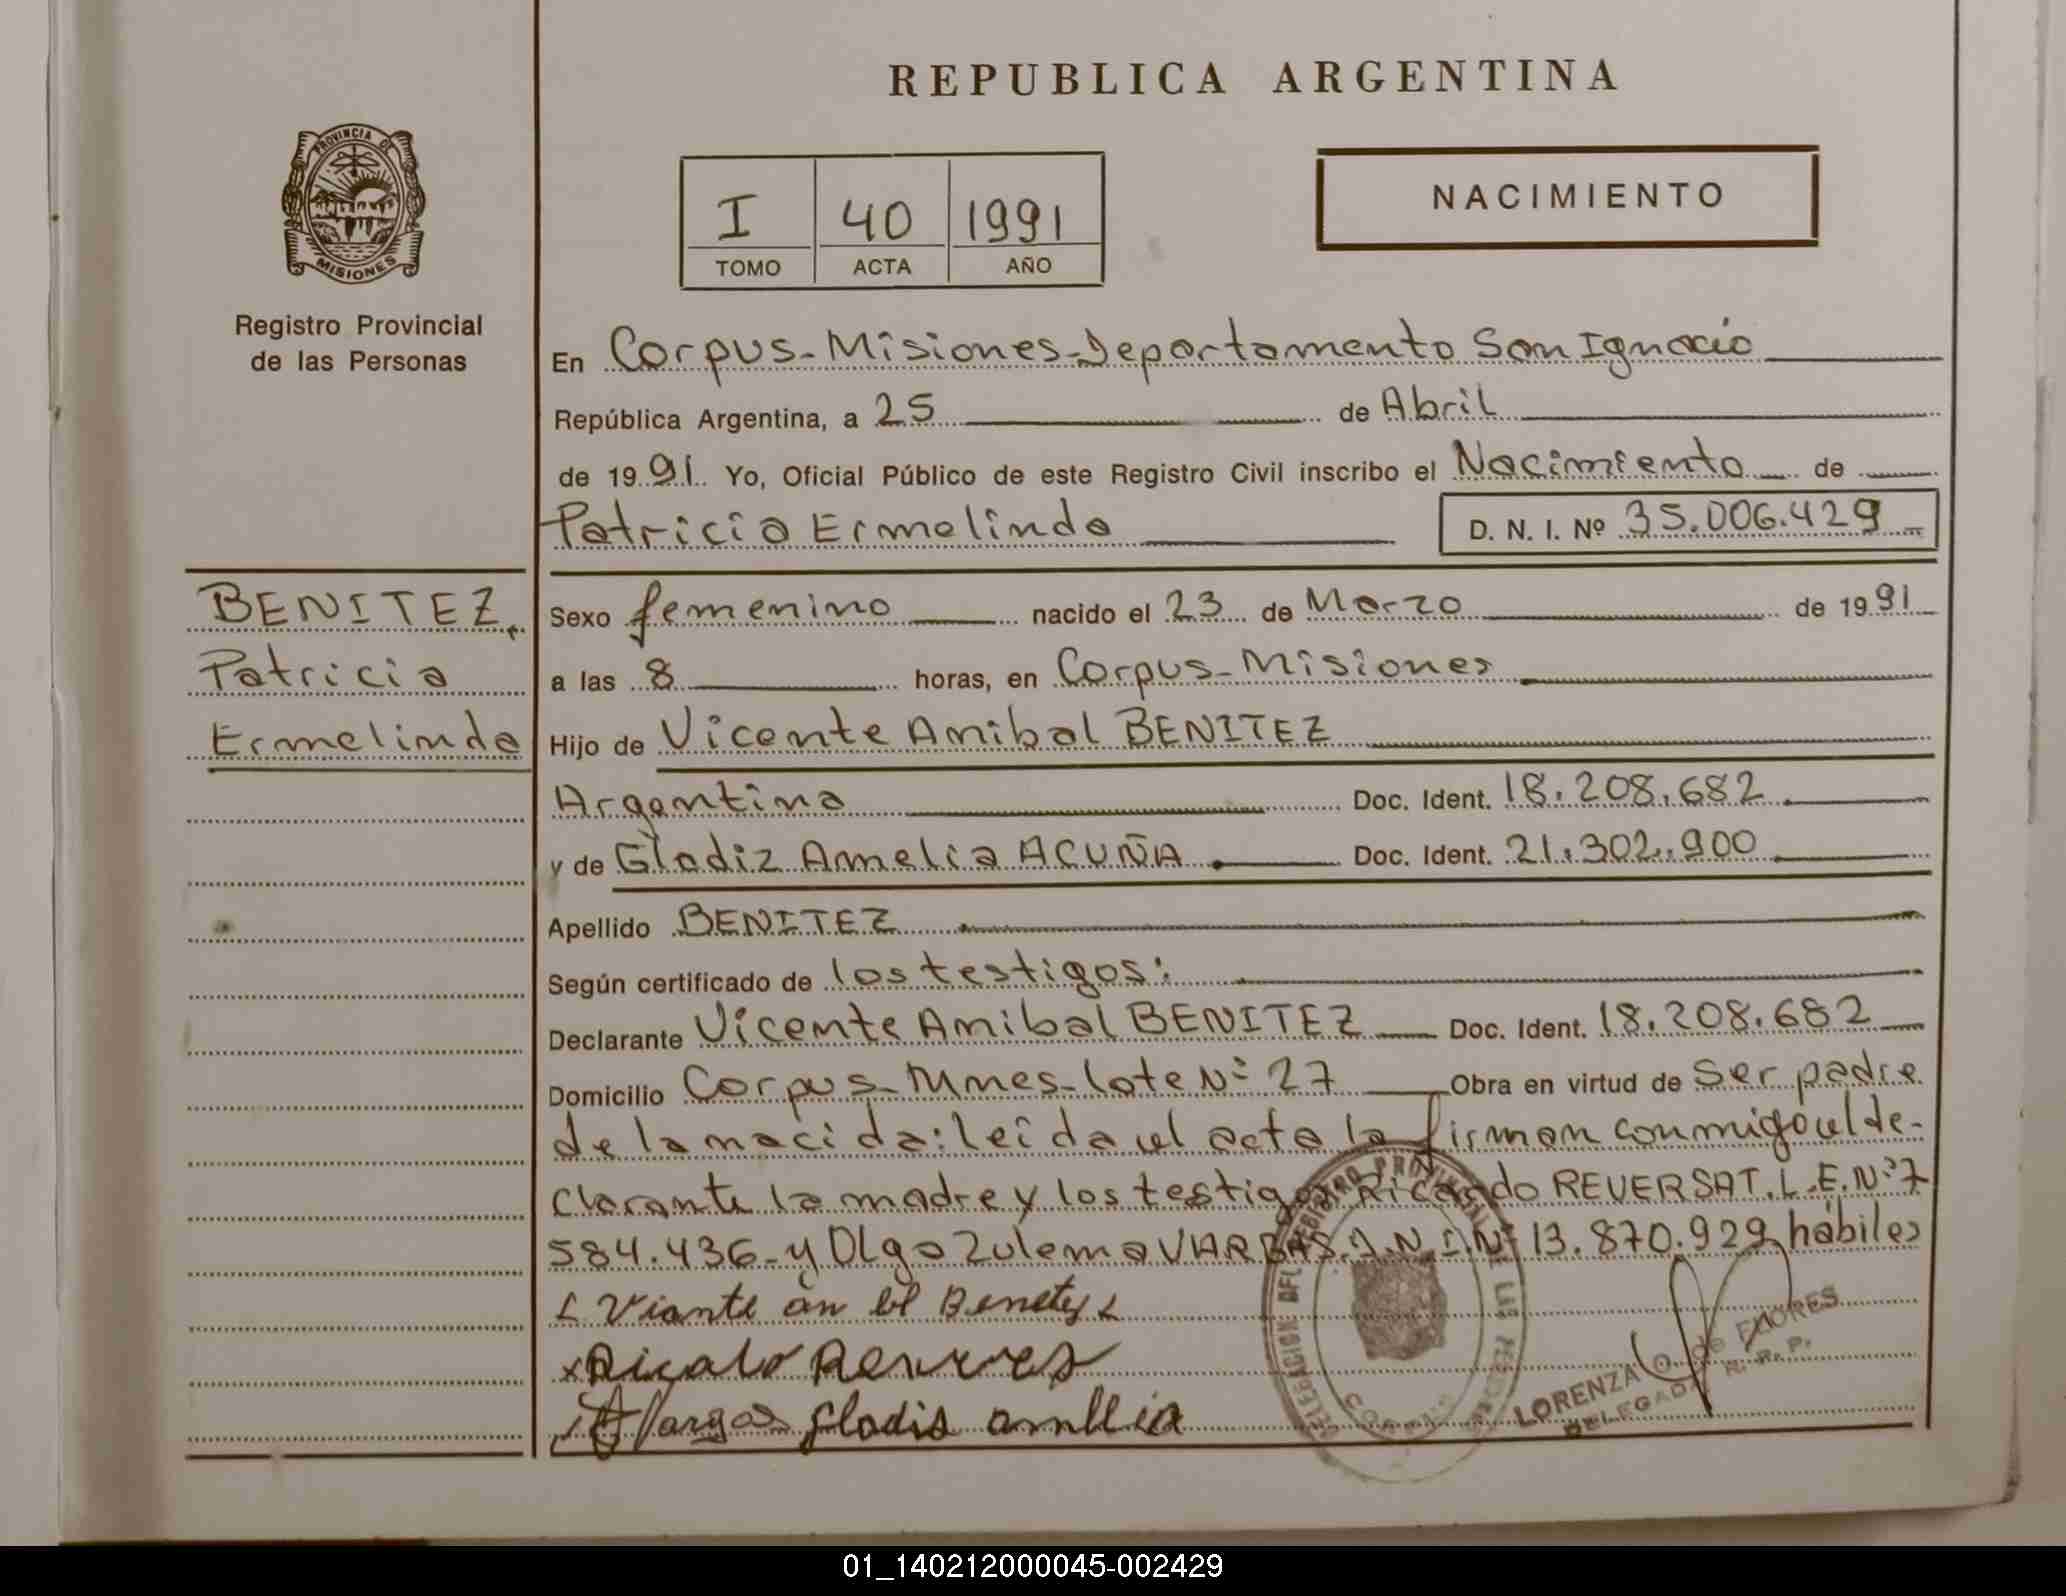 REPUBLICA ARGENTINA
PROVINCIA DE
MISIONES
Registro Provincial
de las Personas
I 40 1991
TOMO ACTA AÑO
NACIMIENTO
En Corpus-Misiones-Departamento San Ignacio
República Argentina, a 25 de Abril
de 1991 Yo, Oficial Público de este Registro Civil inscribo el Nacimiento de
Patricia Ermelinda D. N. I. Nº 35.006.429
BENITEZ,
Patricia
Ermelinda
Sexo femenino nacido el 23 de Marzo de 1991
a las 8 horas, en Corpus-Misiones
Hijo de Vicente Anibal BENITEZ
Argentina Doc. Ident. 18.208.682
y de Gladiz Amelia ACUÑA Doc. Ident. 21.302.900
Apellido BENITEZ
Según certificado de los testigos:
Declarante Vicente Anibal BENITEZ Doc. Ident. 18.208.682
Domicilio Corpus-Mnes-lote Nº 27 Obra en virtud de ser padre
de la nacida: leida el acta la firman conmigo el de-
clarante la madre y los testigos Ricardo REVERSAT. L.E.Nº 7
584.436- y Olga Zulema VARGAS. D.N.I. Nº 13.870.929 hábiles
Vargas Gladis
LORENZA de FLORES
DELEGADA R. R. P.
01_140212000045-002429